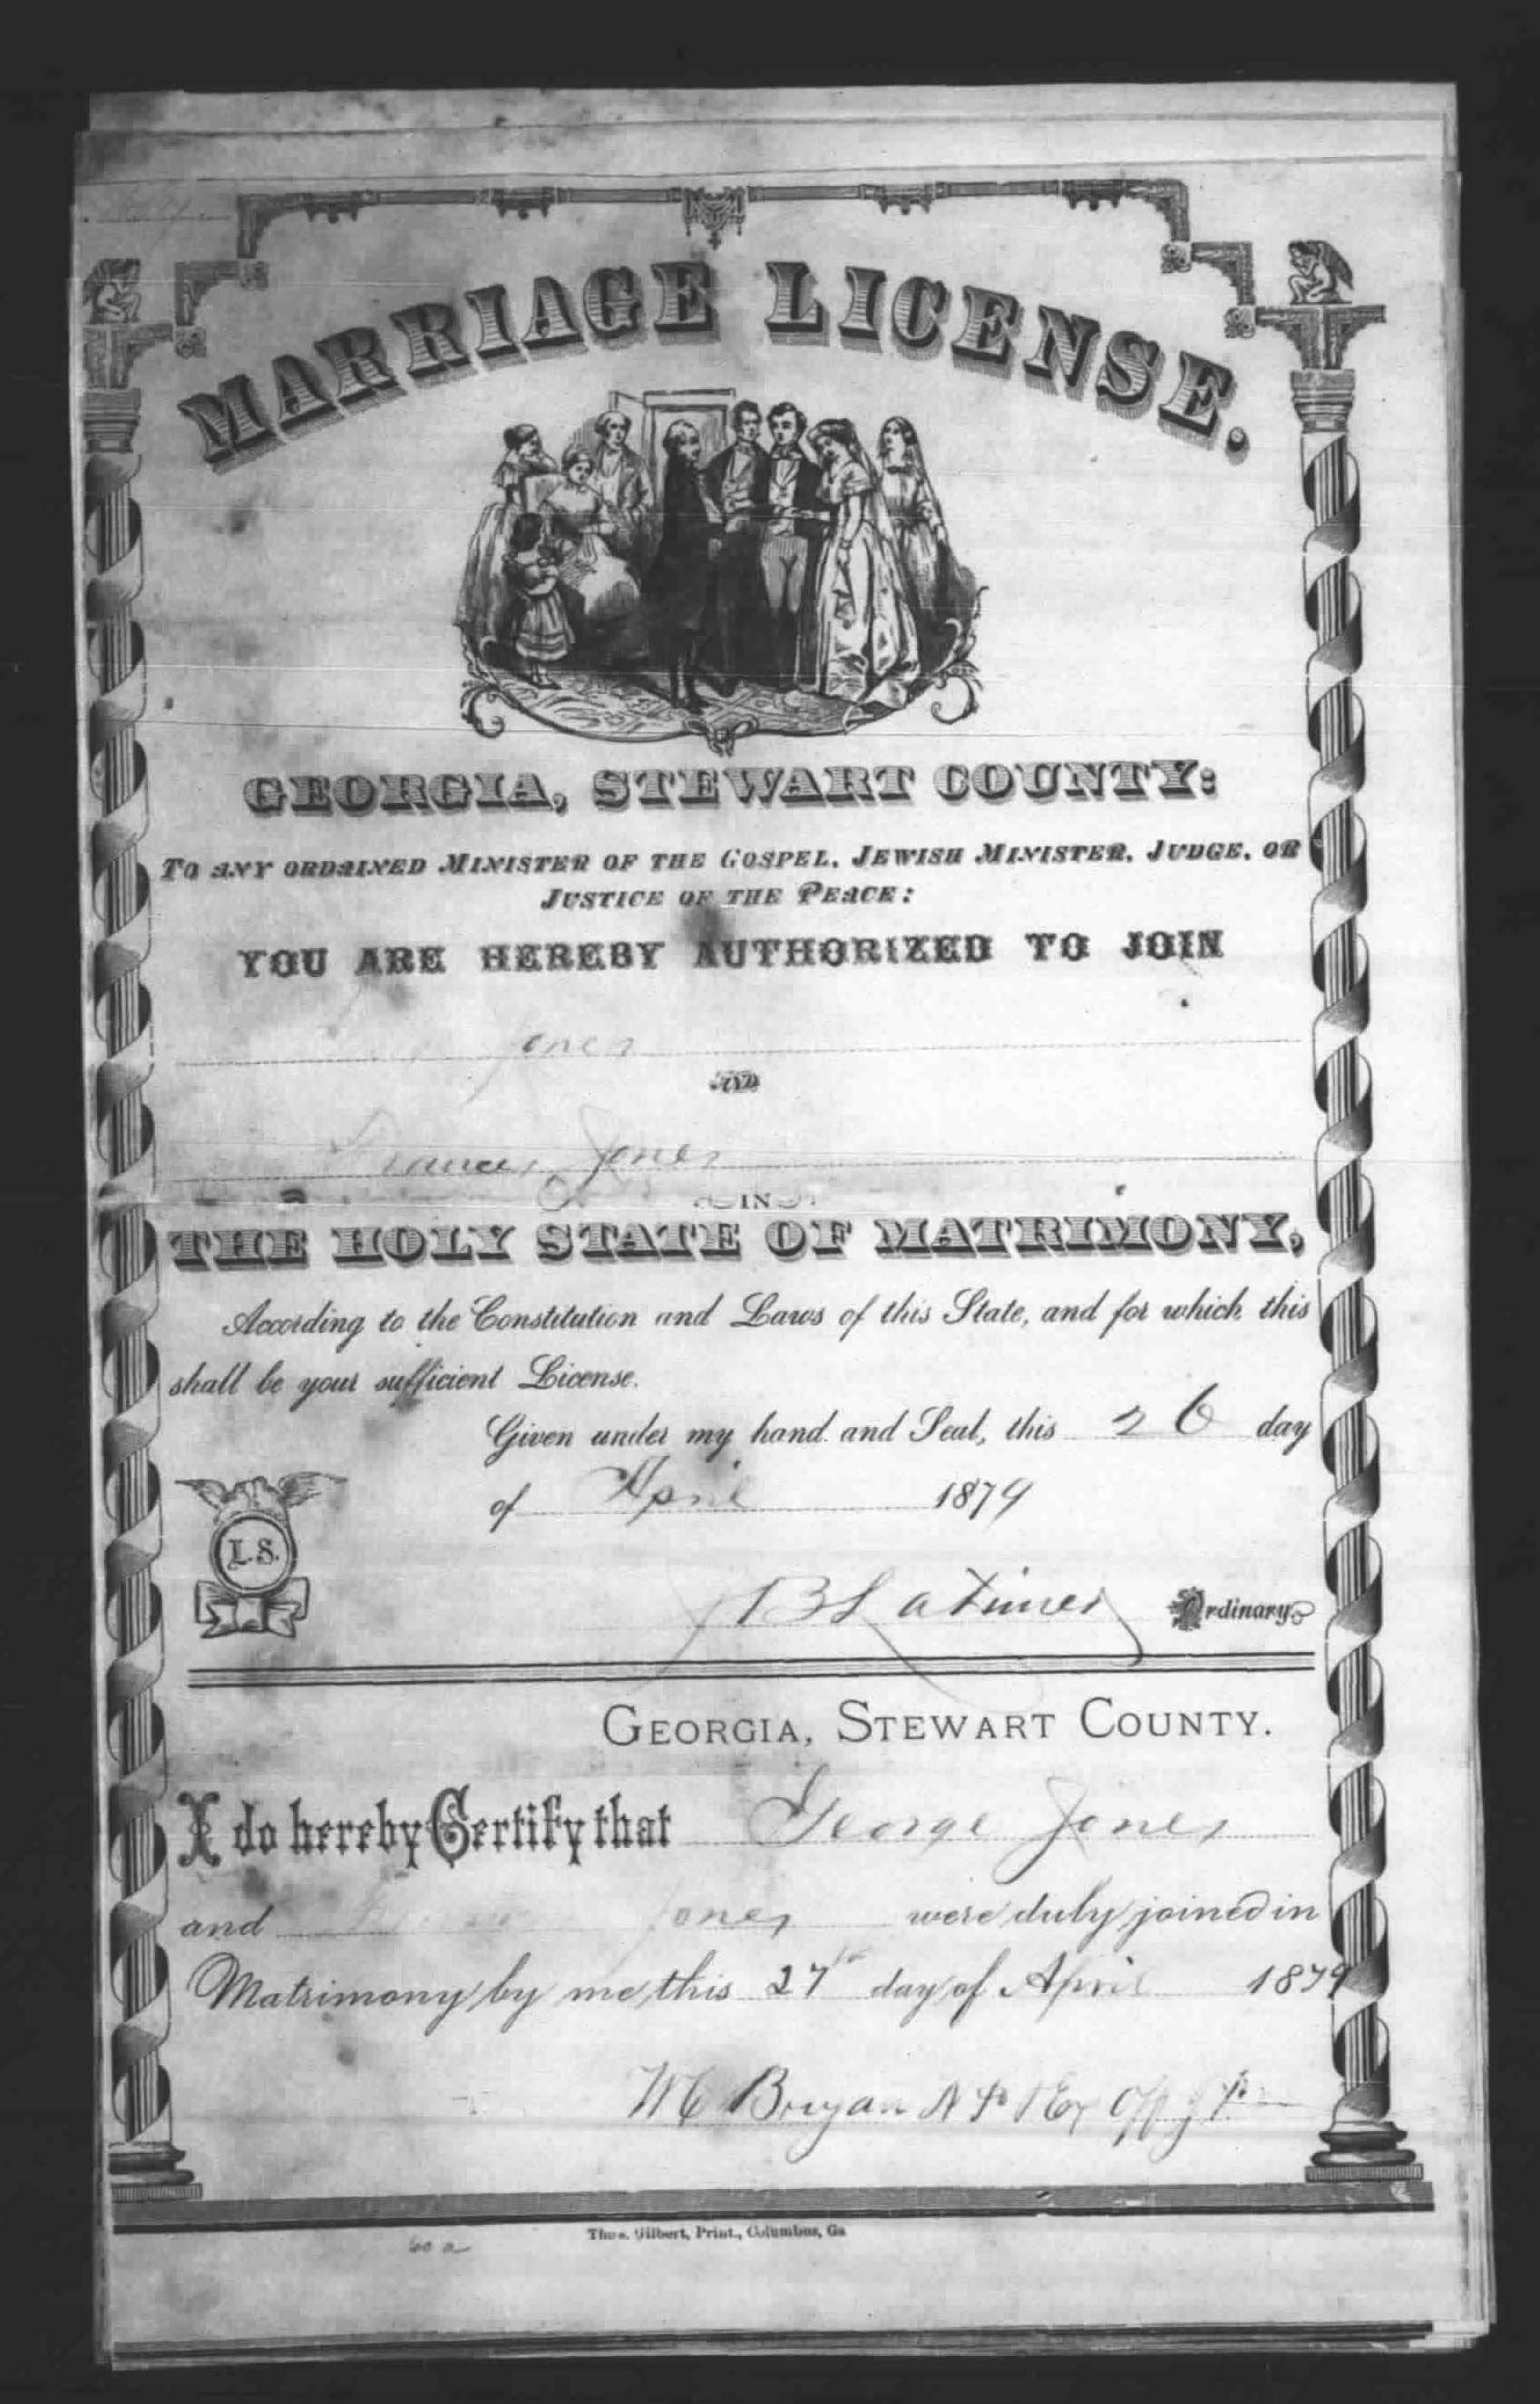 MARRIAGE LICENSE.
GEORGIA, STEWART COUNTY:
TO ANY ORDAINED MINISTER OF THE GOSPEL, JEWISH MINISTER, JUDGE, OR
JUSTICE OF THE PEACE:
YOU ARE HEREBY AUTHORIZED TO JOIN
Jones
AND
Frances Jones
IN
THE HOLY STATE OF MATRIMONY,
According to the Constitution and Laws of this State, and for which this
shall be your sufficient License.
Given under my hand and Seal, this 26 day
of April 1879
L.S.
J B Latimer Ordinary
GEORGIA, STEWART COUNTY.
I do hereby Certify that George Jones
and Jones were duly joined in
Matrimony by me this 27th day of April 1879
W C Bryan N P & Ex Off J P
Thos. Gilbert, Print., Columbus, Ga